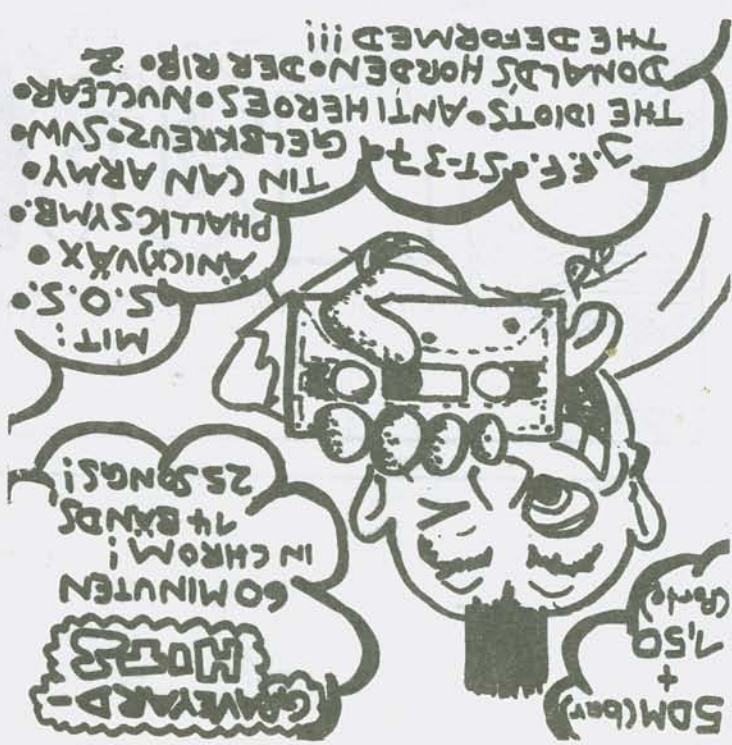 5DM(bar)
+
1,50
(Porto)
GRAVEYARD-
HITS
60 MINUTEN
IN CHROM!
14 BANDS
25 SONGS!
MIT:
S.O.S.•
PHALLIC SYMB.•
TIN CAN ARMY•
J.F.F.•ST-37•
GELBKREUZ•SUW•
THE IDIOTS•ANTIHEROES•NUCLEAR•
DONALD'S HORDEN•DER RIB• &
THE DEFORMED !!!